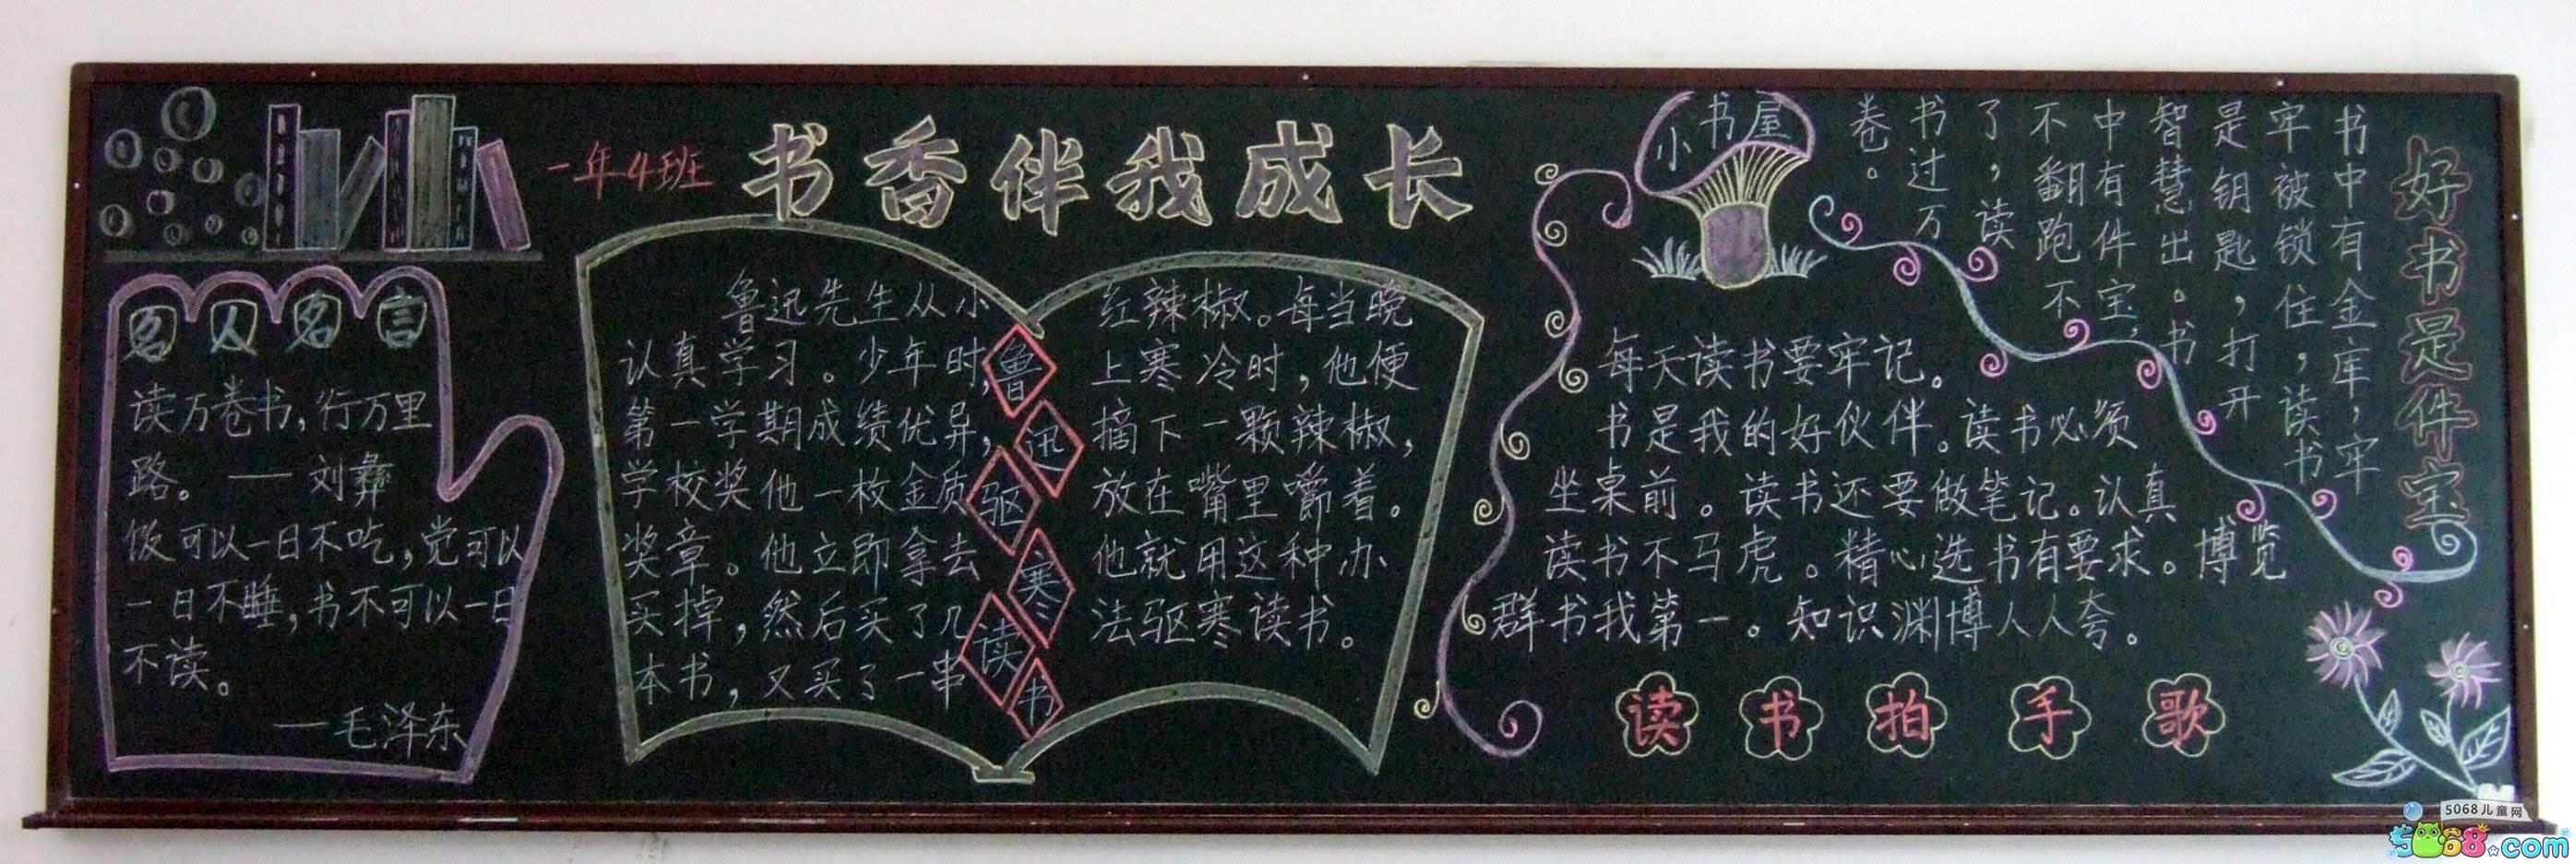 一年4班
书香伴我成长
名人名言
读万卷书,行万里
路。——刘彝
饭可以一日不吃,觉可以
一日不睡,书不可以一日
不读。
——毛泽东
鲁迅驱寒读书
鲁迅先生从小
认真学习。少年时,
第一学期成绩优异,
学校奖他一枚金质
奖章。他立即拿去
买掉,然后买了几
本书,又买了一串
红辣椒。每当晚
上寒冷时,他便
摘下一颗辣椒,
放在嘴里嚼着。
他就用这种办
法驱寒读书。
小书屋
好书是件宝
书中有金库,牢
牢被锁住,读书
是钥匙,打开
智慧出。书
中有件宝,
不翻跑不
了,读
书过万
卷。
每天读书要牢记。
书是我的好伙伴。读书必须
坐桌前。读书还要做笔记。认真
读书不马虎。精心选书有要求。博览
群书我第一。知识渊博人人夸。
读书拍手歌
5068儿童网
5068.com